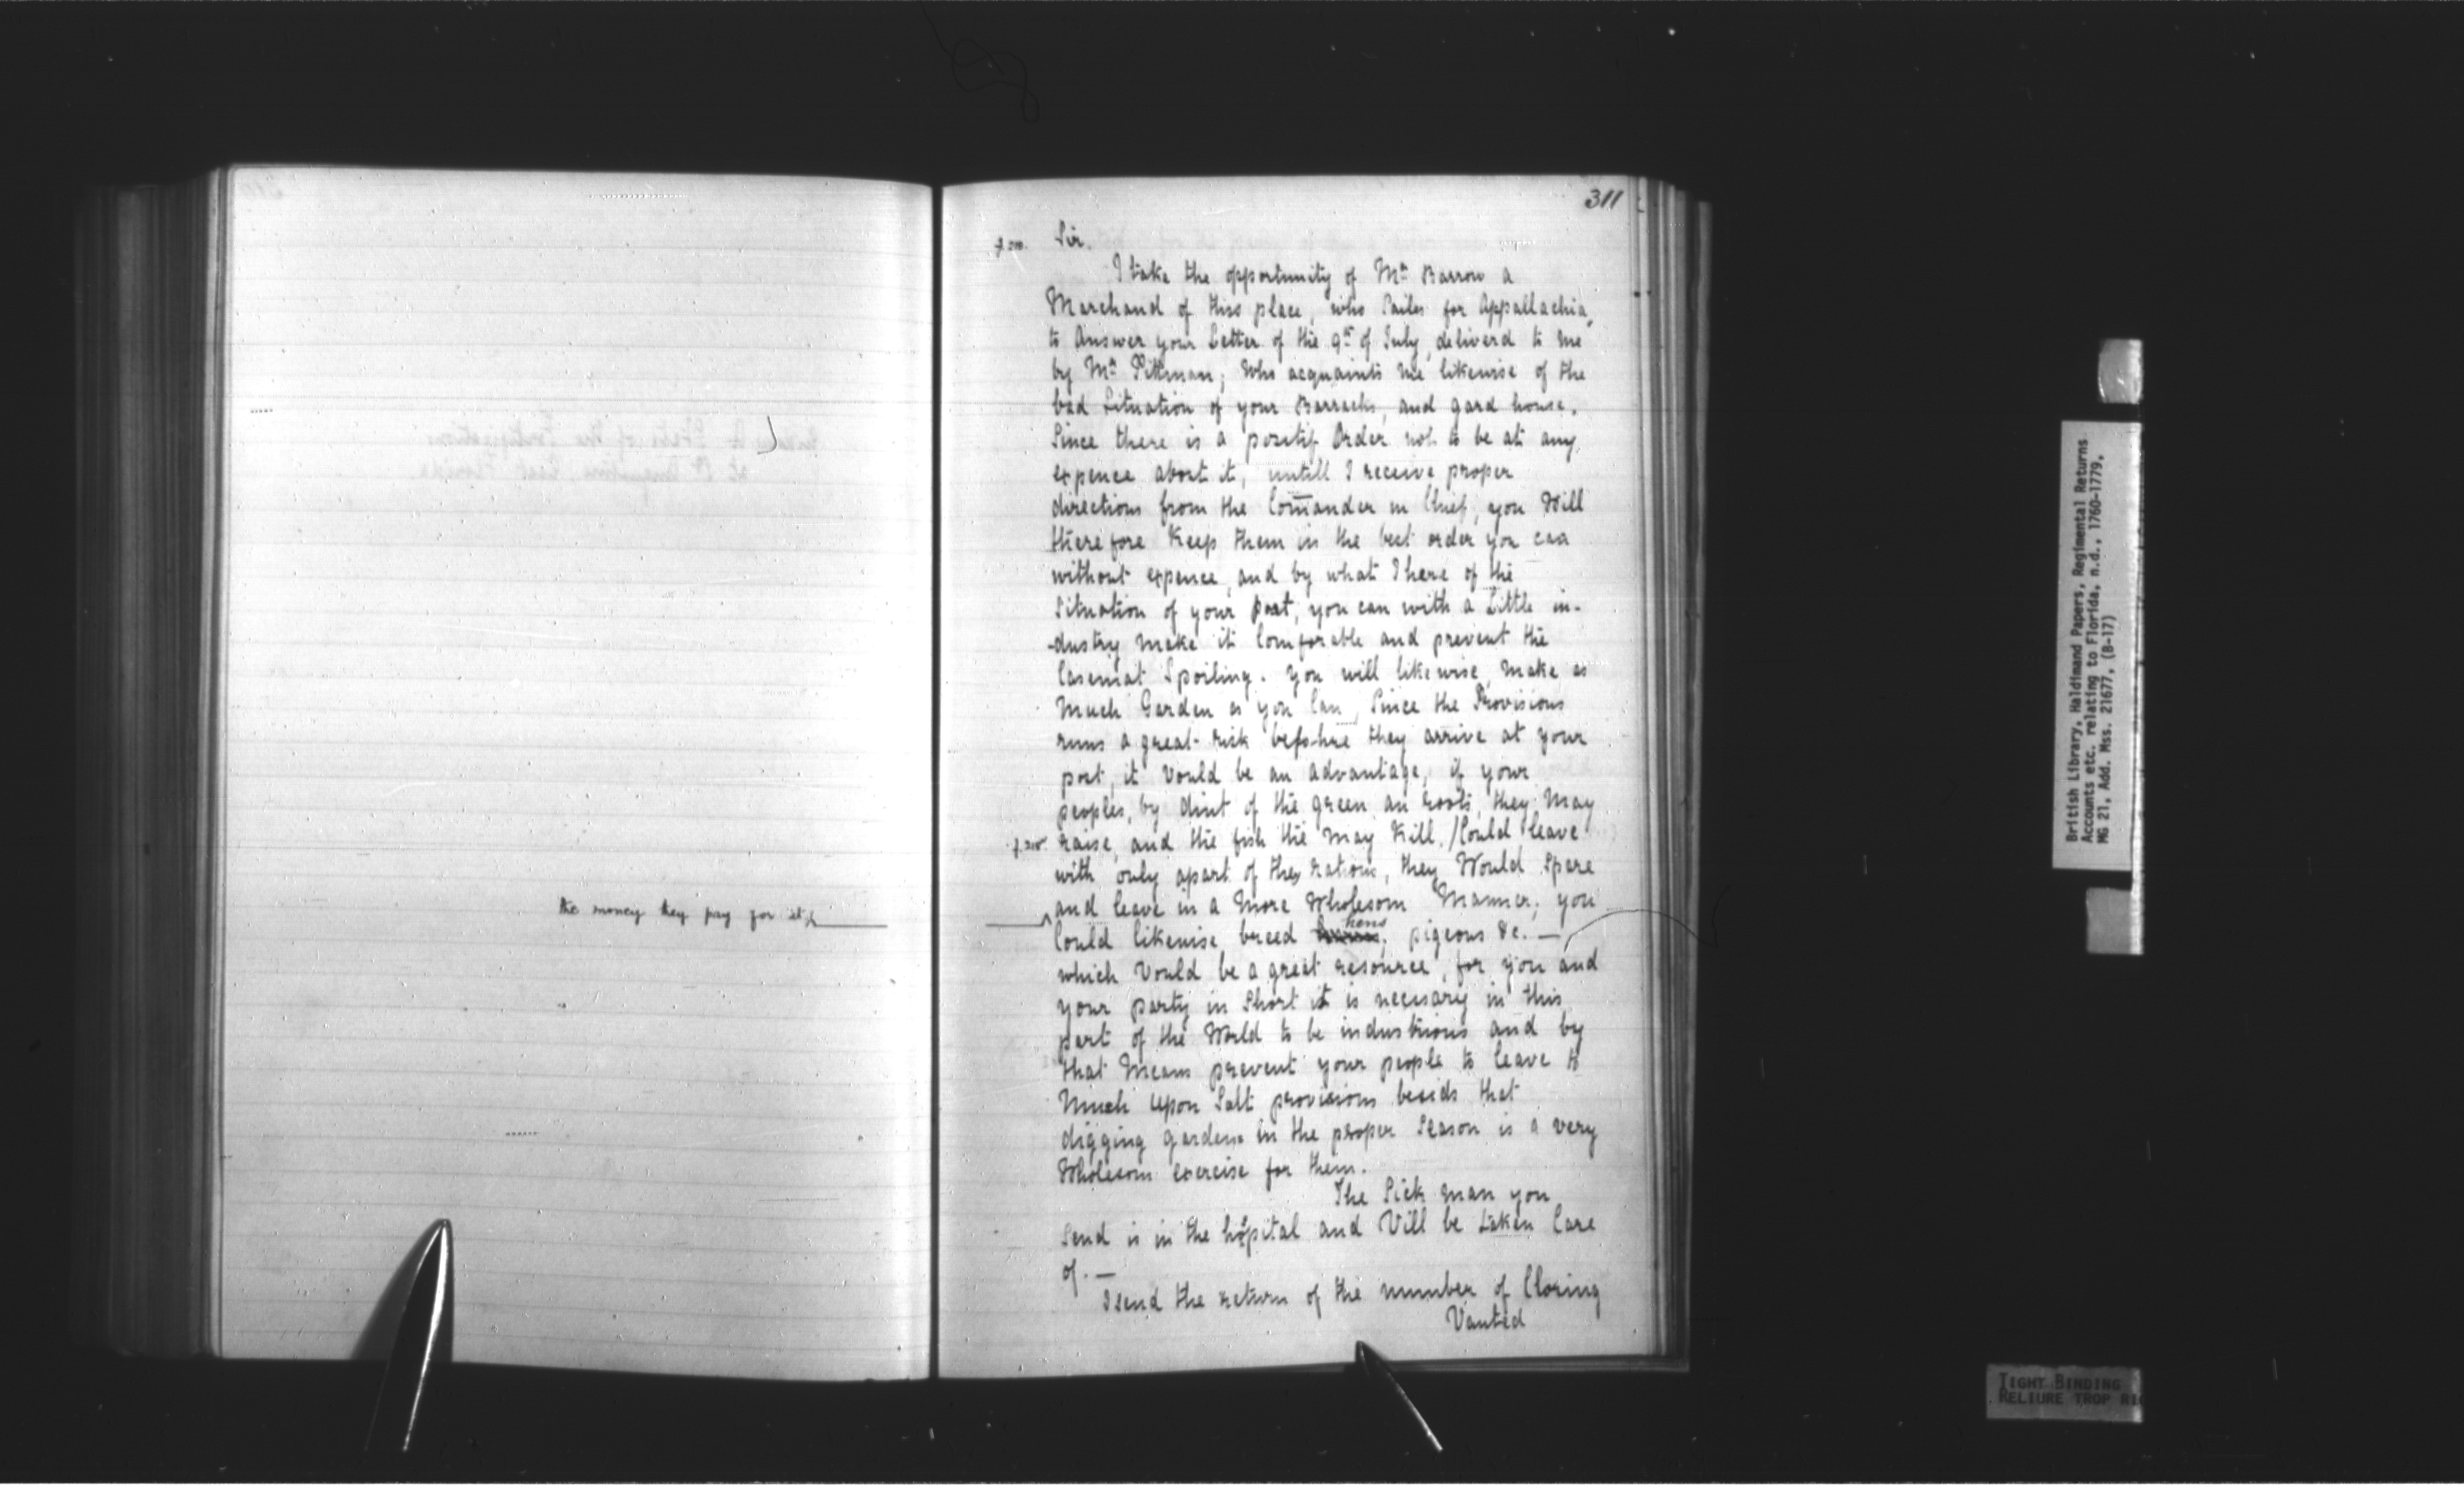 the money they pay for it
311
Sir.
I take the opportunity of Mr Barrow a
Marchand of this place, who Sailes for Appallachia,
to Answer your Letter of the 9th of July, deliverd to me
by Mr Pittman; Who acquaints me likewise of the
bad Situation of your Barracks, and gard house.
Since there is a positif Order not to be at any
expence about it, untill I receive proper
directions from the Comander in Chief, you Will
therefore Keep them in the best order you can
without expence, and by what I here of the
Situation of your post, you can with a Little in-
-dustry make it Comforable and prevent the
Casemat Spoiling. you will likewise make as
Much Garden as you Can, Since the Provisions
runs a great risk befohre they arrive at your
post, it Vould be an advantage, if your
peoples, by dint of the green an roots, they May
raise, and the fish the may Kill, /Could leave
with only apart of the rations, they Would spare
and leave in a More Wholesom Manner; you
Could likewise breed hens, pigeons &c. —
which Vould be a great resource, for you and
your party in Short it is necessary in this
part of the World to be industrious and by
that Means prevent your people to leave to
Much upon Salt provisions besids that
digging gardens in the proper Season is a very
Wholesom exercise for them.
The Sick man you
Send is in the hôpital and Vill be taken Care
of. —
I send the return of the number of Cloring
Vanted
British Library, Haldimand Papers, Regimental Returns
Accounts etc. relating to Florida, n.d., 1760-1779.
MG 21, Add. Mss. 21677, (B-17)
TIGHT BINDING
RELIURE TROP RI